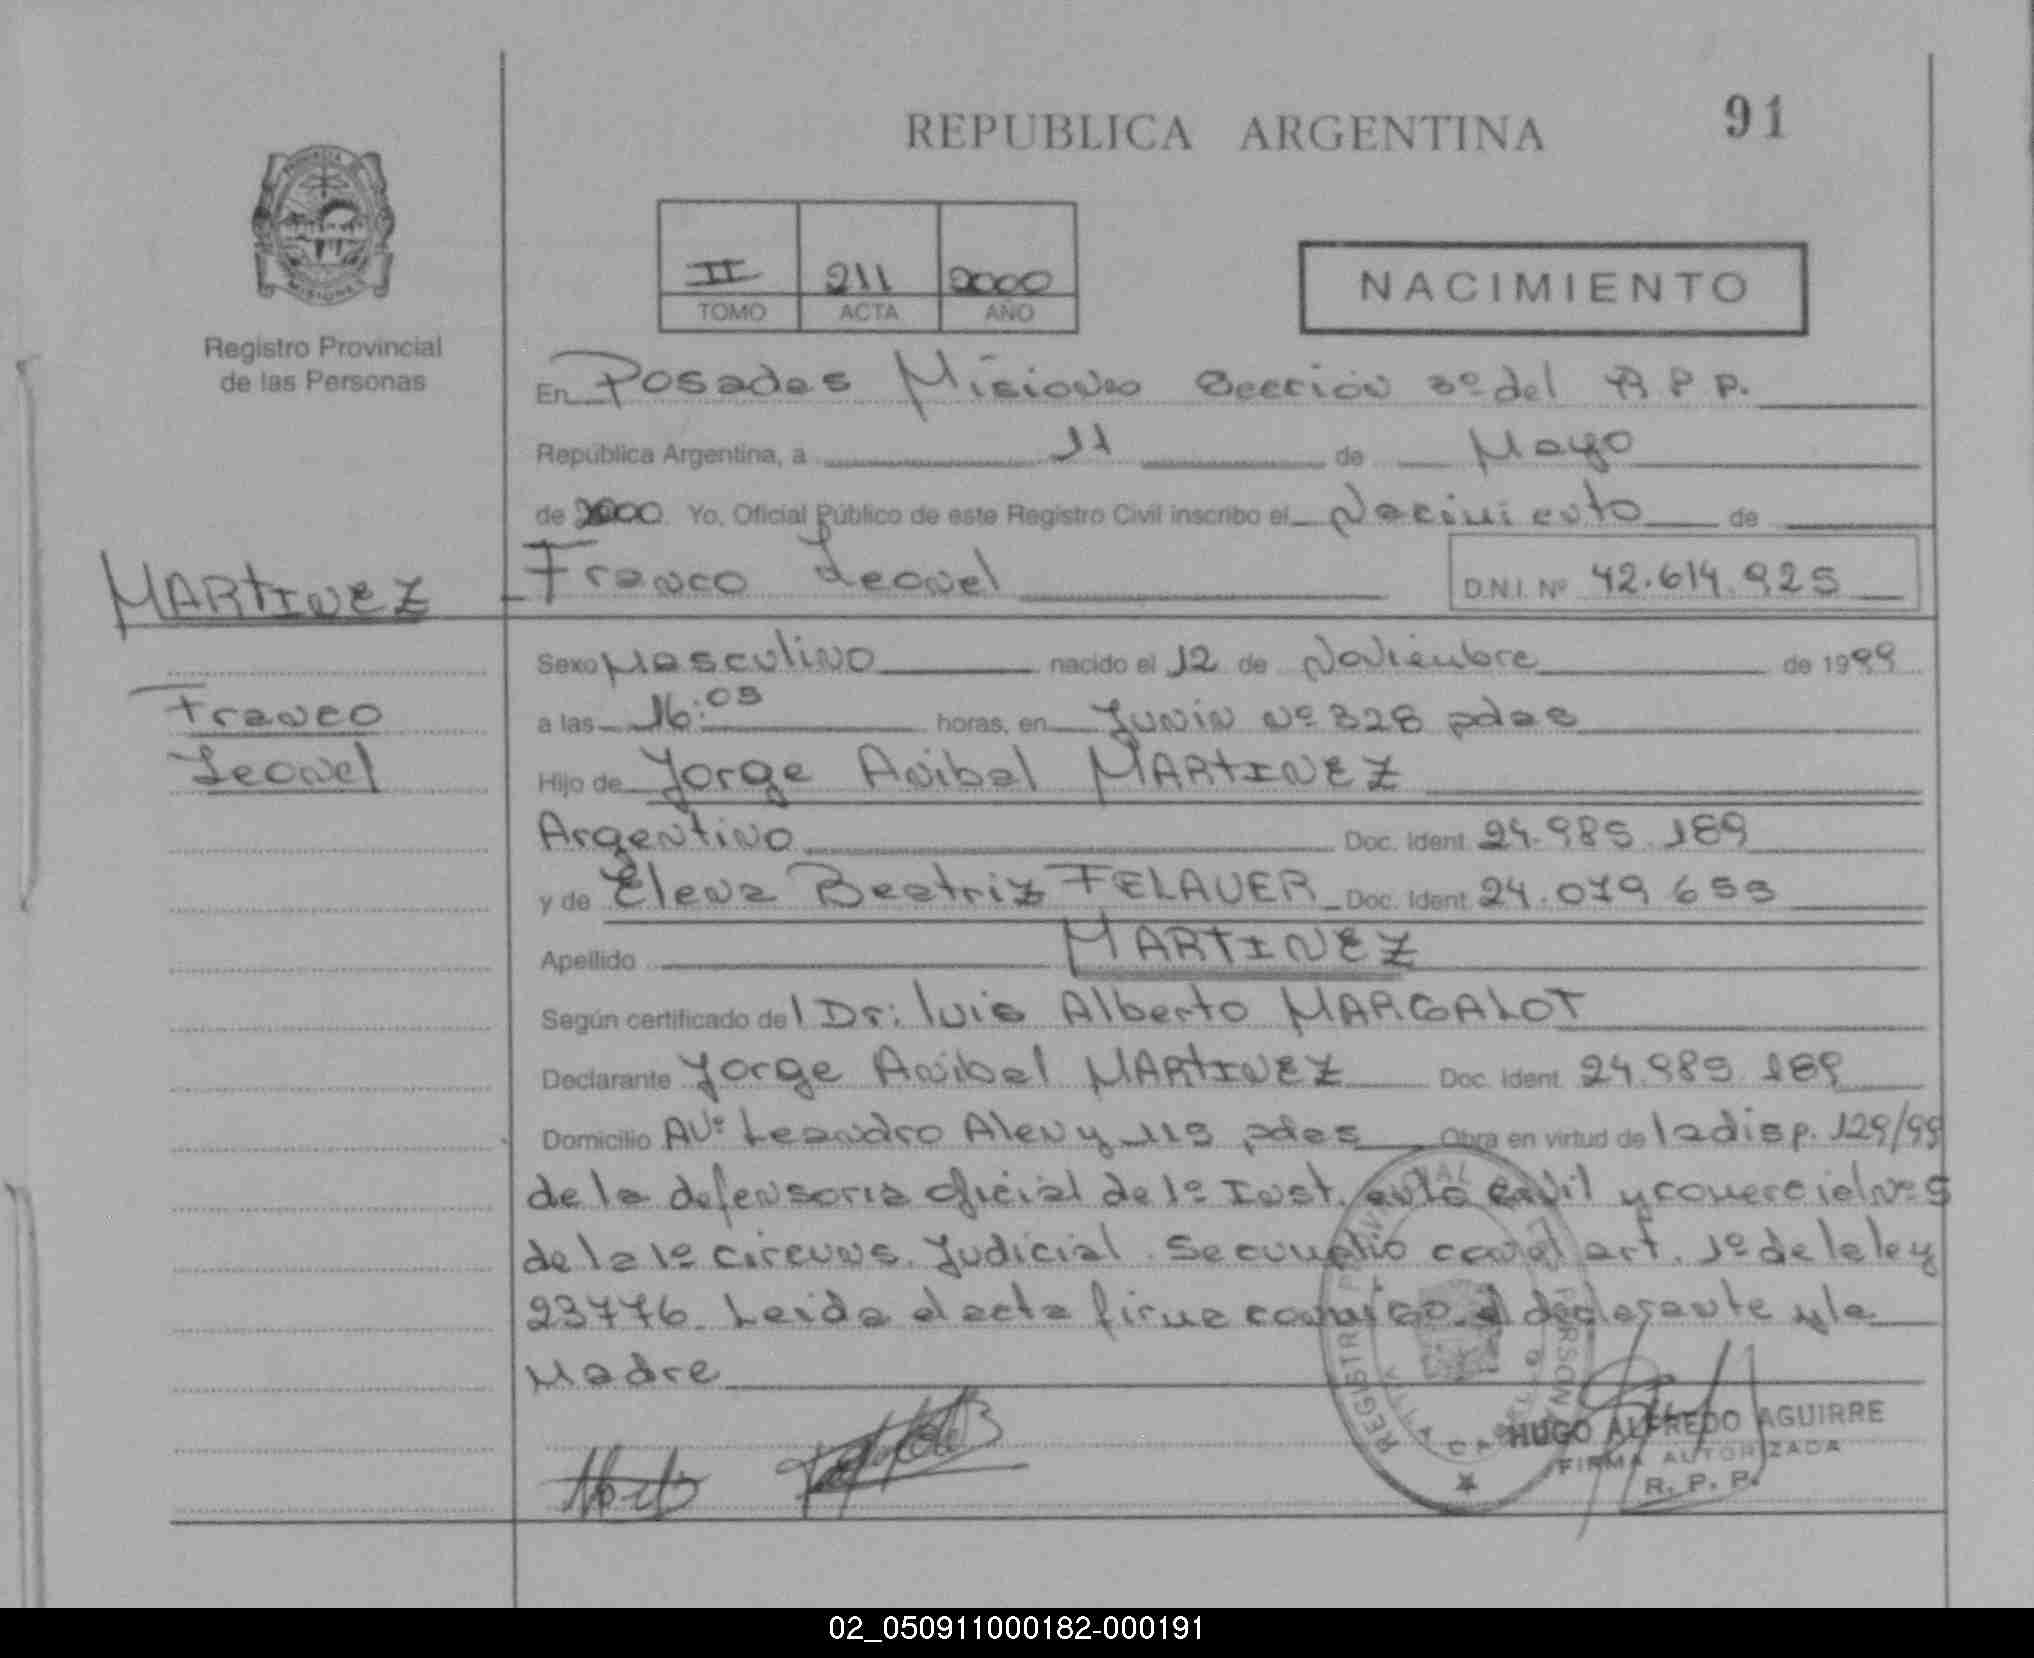 REPUBLICA ARGENTINA
91
II 211 2000
TOMO ACTA AÑO
NACIMIENTO
Registro Provincial
de las Personas
En Posadas Misiones Sección 3º del R.P.P.
República Argentina, a 11 de Mayo
de 2000 Yo, Oficial Público de este Registro Civil inscribo el Nacimiento de
MARTINEZ
Franco Leonel
D.N.I. Nº 42.614.925
Sexo Masculino nacido el 12 de Noviembre de 1999
Franco
Leonel
a las 16:05 horas, en Junin Nº 328 pdas
Hijo de Jorge Anibal MARTINEZ
Argentino Doc. Ident. 24.985.189
y de Elena Beatriz FELAUER Doc. Ident. 24.079.653
Apellido MARTINEZ
Según certificado del Dr: Luis Alberto MARGALOT
Declarante Jorge Anibal MARTINEZ Doc. Ident. 24.985.189
Domicilio Avº Leandro Alen y 115 pdas Obra en virtud de la disp. 129/99
de la defensoria oficial de 1º Inst. en lo Civil y comercial Nº 5
de la 1º circuns. Judicial. Se cumplio con el art. 1º de la ley
23776. Leida el acta firma conmigo el declarante y la
Madre
HUGO ALFREDO AGUIRRE
FIRMA AUTORIZADA
R. P. P.
02_050911000182-000191